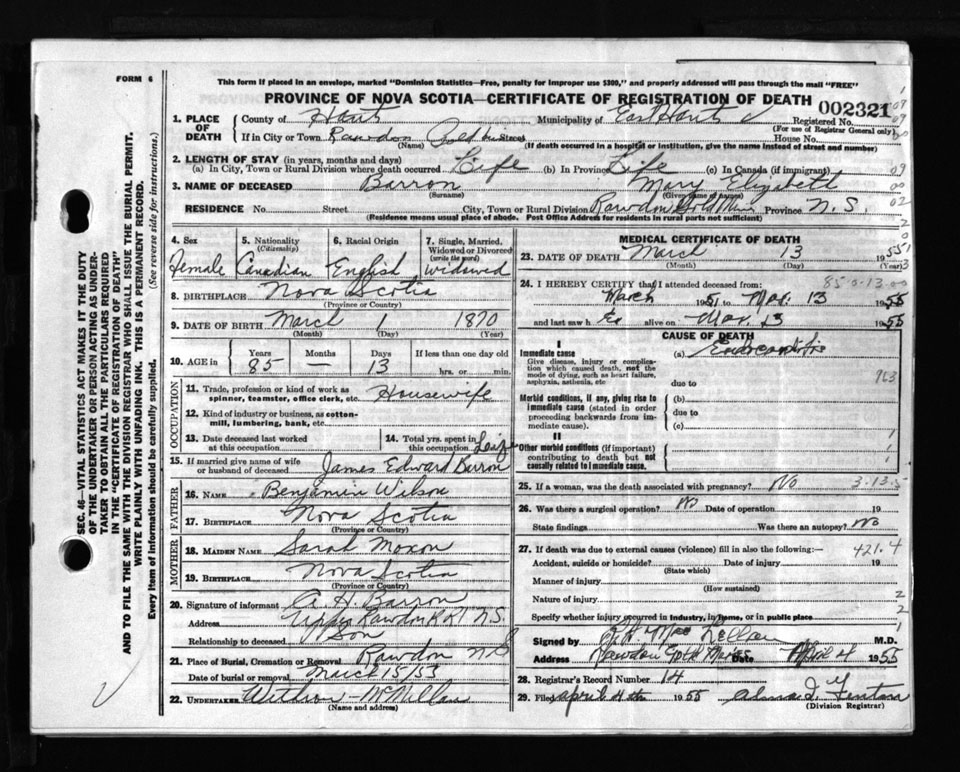 FORM 6
This form if placed in an envelope, marked "Dominion Statistics—Free, penalty for improper use $300," and properly addressed will pass through the mail "FREE"
PROVINCE OF NOVA SCOTIA—CERTIFICATE OF REGISTRATION OF DEATH
002321
Registered No.
(For use of Registrar General only)
1. PLACE OF DEATH
County of Hants Municipality of East Hants
If in City or Town Rawdon Gold Mines Street House No.
(Name) (If death occurred in a hospital or institution, give the name instead of street and number)
2. LENGTH OF STAY (in years, months and days)
(a) In City, Town or Rural Division where death occurred Life (b) In Province Life (c) In Canada (if immigrant)
3. NAME OF DECEASED Barron Mary Elizabeth
(Surname) (Given name or names)
RESIDENCE No. Street City, Town or Rural Division Rawdon Gold Mines Province N.S.
(Residence means usual place of abode. Post Office Address for residents in rural parts not sufficient)
4. Sex
Female
5. Nationality
(Citizenship)
Canadian
6. Racial Origin
English
7. Single, Married, Widowed or Divorced
(write the word)
widowed
8. BIRTHPLACE Nova Scotia
(Province or Country)
9. DATE OF BIRTH March 1 1870
(Month) (Day) (Year)
10. AGE in
Years Months Days If less than one day old
85 — 13 hrs. or min.
OCCUPATION
11. Trade, profession or kind of work as spinner, teamster, office clerk, etc. Housewife
12. Kind of industry or business, as cotton-mill, lumbering, bank, etc.
13. Date deceased last worked at this occupation
14. Total yrs. spent in this occupation Life
15. If married give name of wife or husband of deceased James Edward Barron
FATHER
16. NAME Benjamin Wilson
17. BIRTHPLACE Nova Scotia
(Province or Country)
MOTHER
18. MAIDEN NAME Sarah Moxon
19. BIRTHPLACE Nova Scotia
(Province or Country)
20. Signature of informant A. H. Barron
Address Upper Rawdon R R 1 N.S.
Relationship to deceased Son
21. Place of Burial, Cremation or Removal Rawdon N.S
Date of burial or removal March 15/55
22. UNDERTAKER McMillan
(Name and address)
MEDICAL CERTIFICATE OF DEATH
23. DATE OF DEATH March 13 1955
(Month) (Day) (Year)
85-0-13
24. I HEREBY CERTIFY that I attended deceased from:
March 1951 to Mar. 13 1955
and last saw h er alive on Mar. 13 1955
CAUSE OF DEATH
I
Immediate cause
Give disease, injury or complication which caused death, not the mode of dying, such as heart failure, asphyxia, asthenia, etc
(a) Endocarditis
due to
Morbid conditions, if any, giving rise to immediate cause (stated in order proceeding backwards from immediate cause).
(b)
due to
(c)
II
Other morbid conditions (if important) contributing to death but not causally related to immediate cause.
25. If a woman, was the death associated with pregnancy? No
3-13-5
26. Was there a surgical operation? No Date of operation 19
State findings Was there an autopsy? No
27. If death was due to external causes (violence) fill in also the following:—
421.4
Accident, suicide or homicide? Date of injury 19
(State which)
Manner of injury
(How sustained)
Nature of injury
Specify whether injury occurred in industry, in home, or in public place
Signed by MacLellan M.D.
Address Rawdon Gold Mines Date April 4 1955
28. Registrar's Record Number 14
29. Filed April 4th 1955 Alma I. Fenton
(Division Registrar)
SEC. 46—VITAL STATISTICS ACT MAKES IT THE DUTY
OF THE UNDERTAKER OR PERSON ACTING AS UNDER-
TAKER TO OBTAIN ALL THE PARTICULARS REQUIRED
IN THE "CERTIFICATE OF REGISTRATION OF DEATH"
AND TO FILE THE SAME WITH THE DIVISION REGISTRAR WHO SHALL ISSUE THE BURIAL PERMIT.
WRITE PLAINLY WITH UNFADING INK. THIS IS A PERMANENT RECORD.
Every item of information should be carefully supplied. (See reverse side for instructions.)